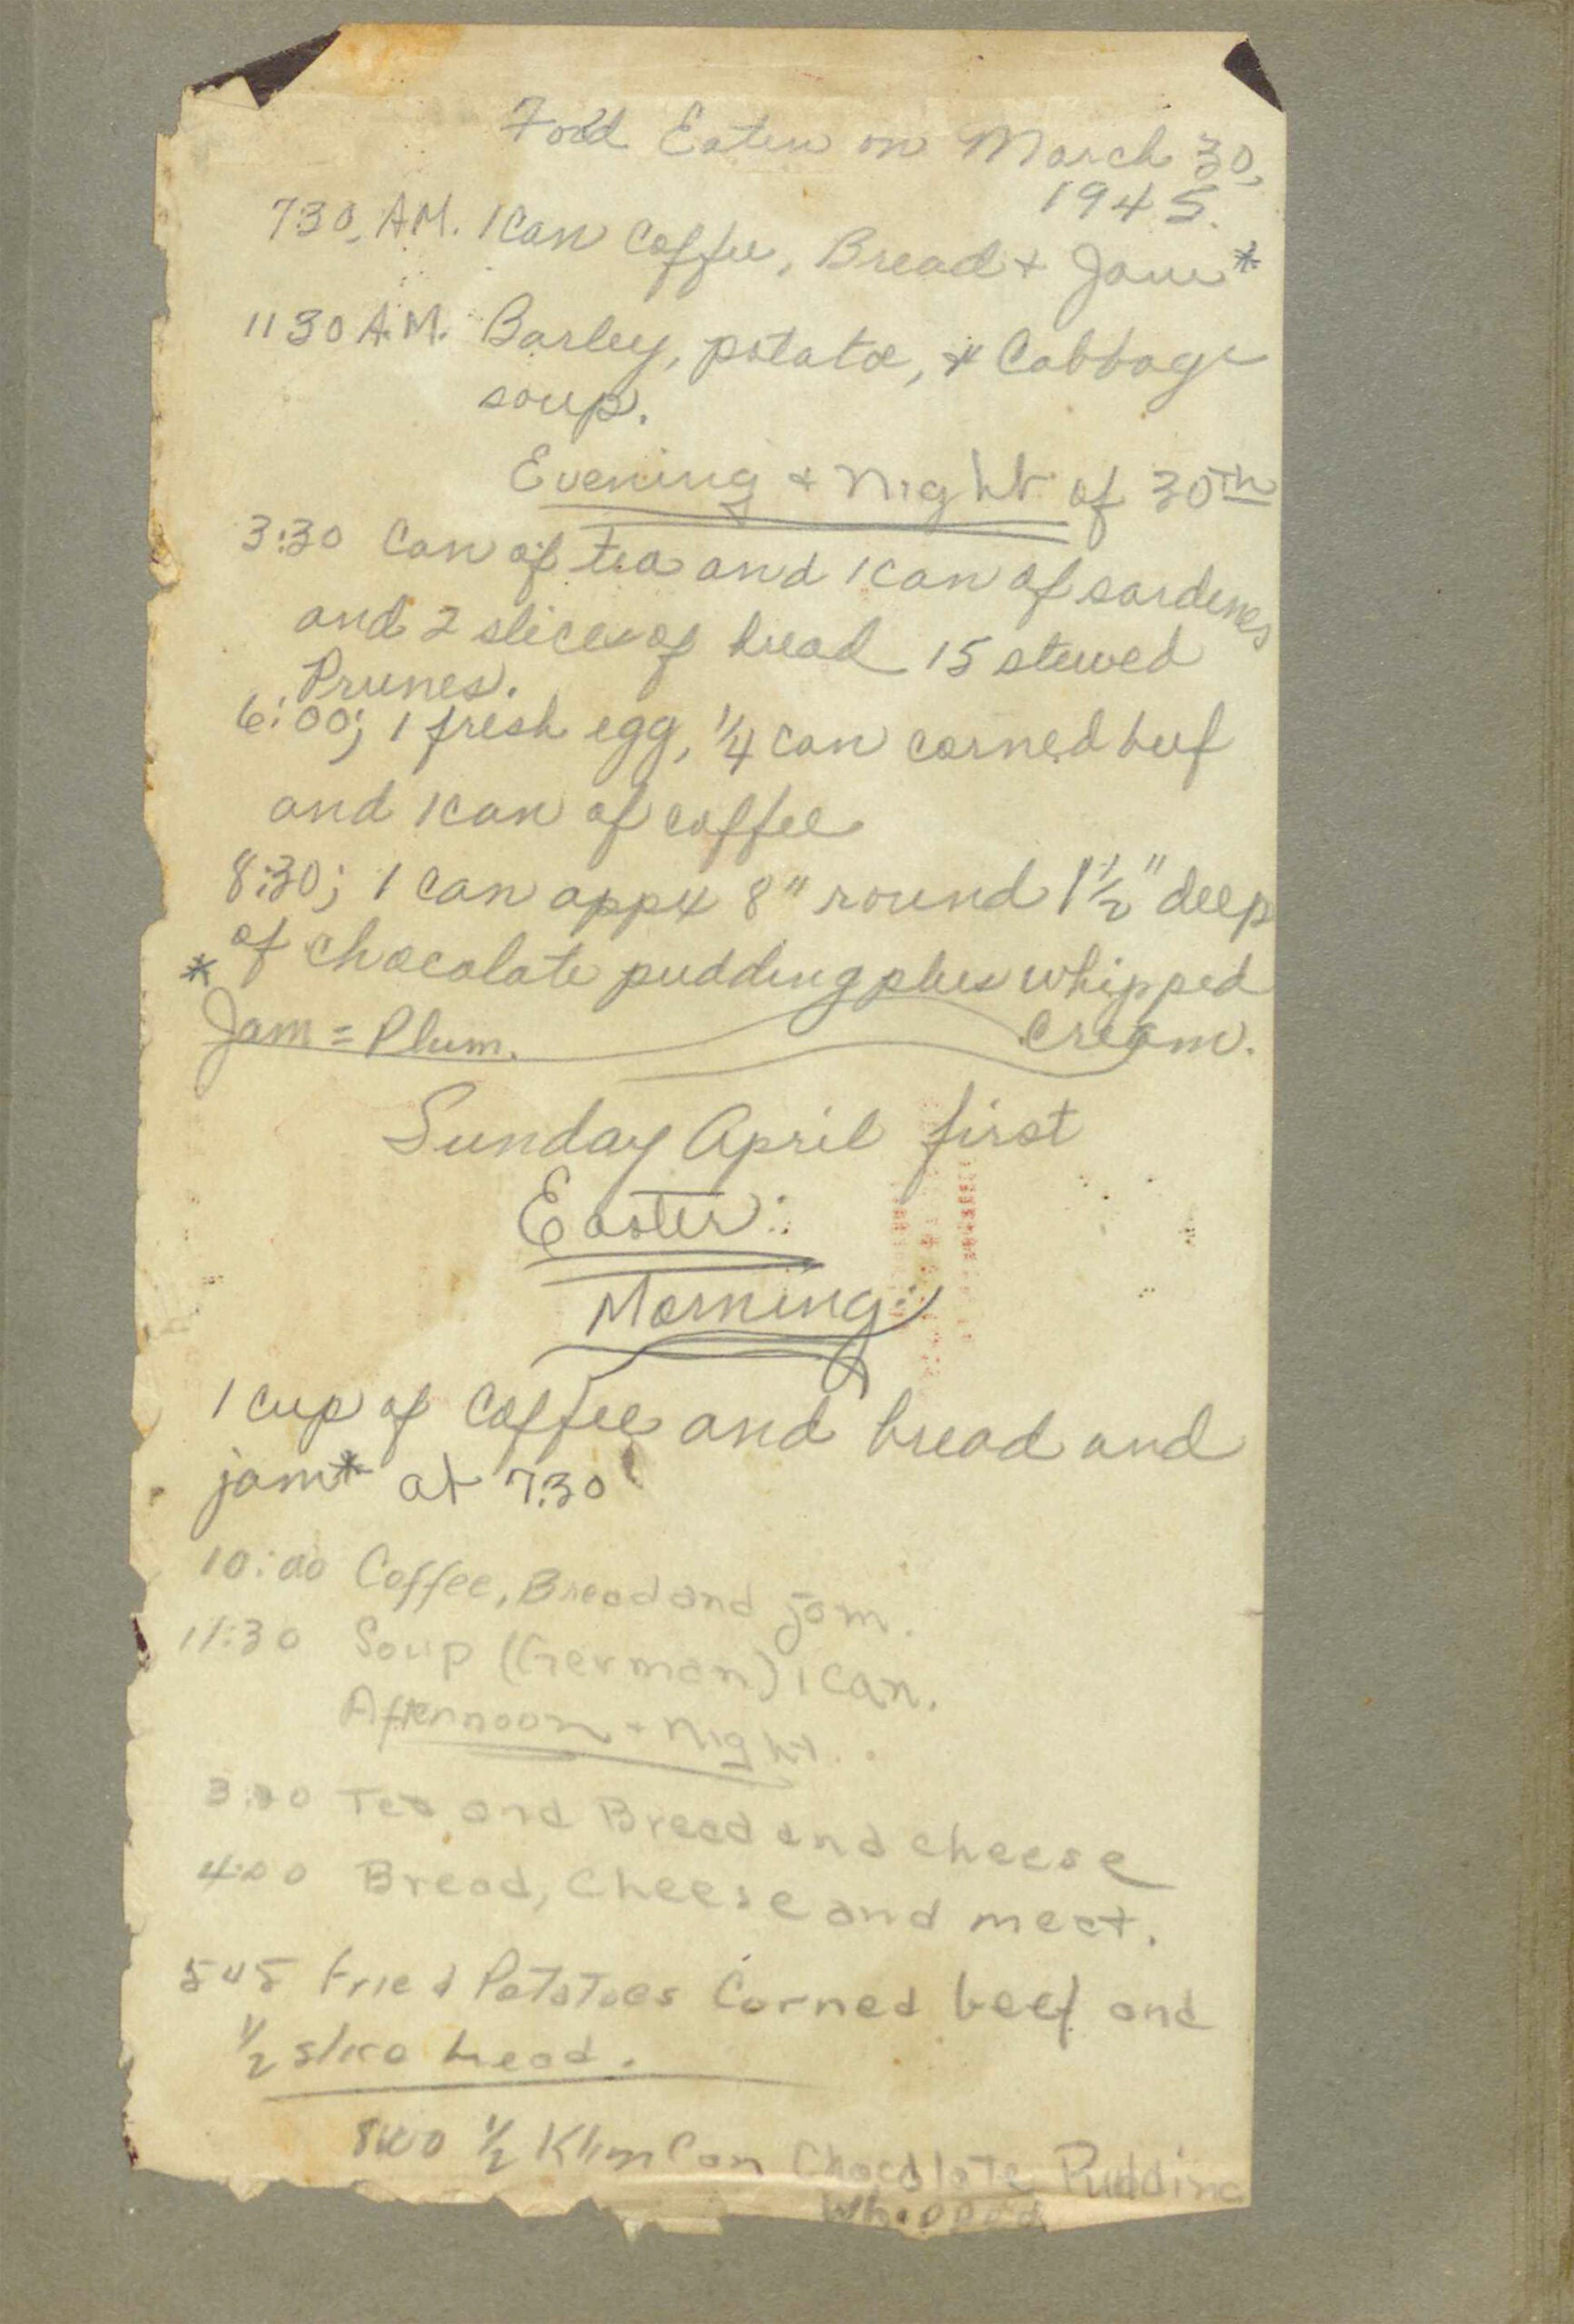 Food Eaten on March 30,
1945.
730, AM. 1 Can Coffee, Bread + Jam*
11 30 A.M. Barley, potatoe, + Cabbage
soup.
Evening + Night of 30th
3:30 Can of tea and 1 can of sardenes
and 2 slices of bread 15 stewed
Prunes.
6:00; 1 fresh egg, 1/4 can corned beef
and 1 can of coffee
8:30; 1 can appx 8" round 1 1/2" deep
of chocolate pudding plus whipped
cream.
* Jam = Plum.
Sunday April first
Easter:
Morning:
1 cup of Coffee and bread and
jam* at 7:30
10:00 Coffee, Bread and jam.
11:30 Soup (German) 1 can.
Afternoon + Night.
3:30 Tea and Bread and cheese
4:00 Bread, Cheese and meat.
545 Fried Potatoes Corned beef and
1/2 slice bread.
800 1/2 Klim Can Chocolate Pudding
Whipped